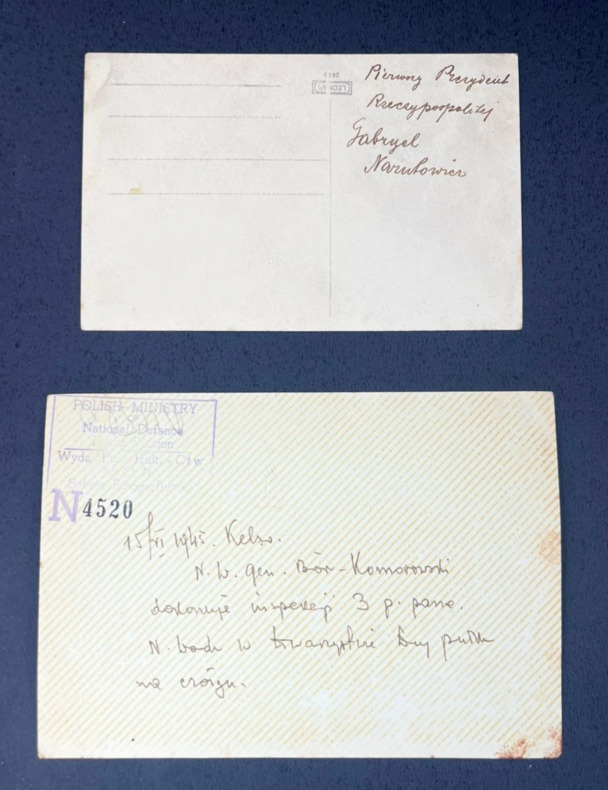 Pierwszy Prezydent
Rzeczypospolitej
Gabryel
Narutowicz
POLISH MINISTRY
National Defence
Wydz.
N 4520
15/VI 1945. Kelso.
N. W. gen. Bór-Komorowski
dokonuje inspekcji 3 p. panc.
N. Wódz w towarzystwie
na czołgu.